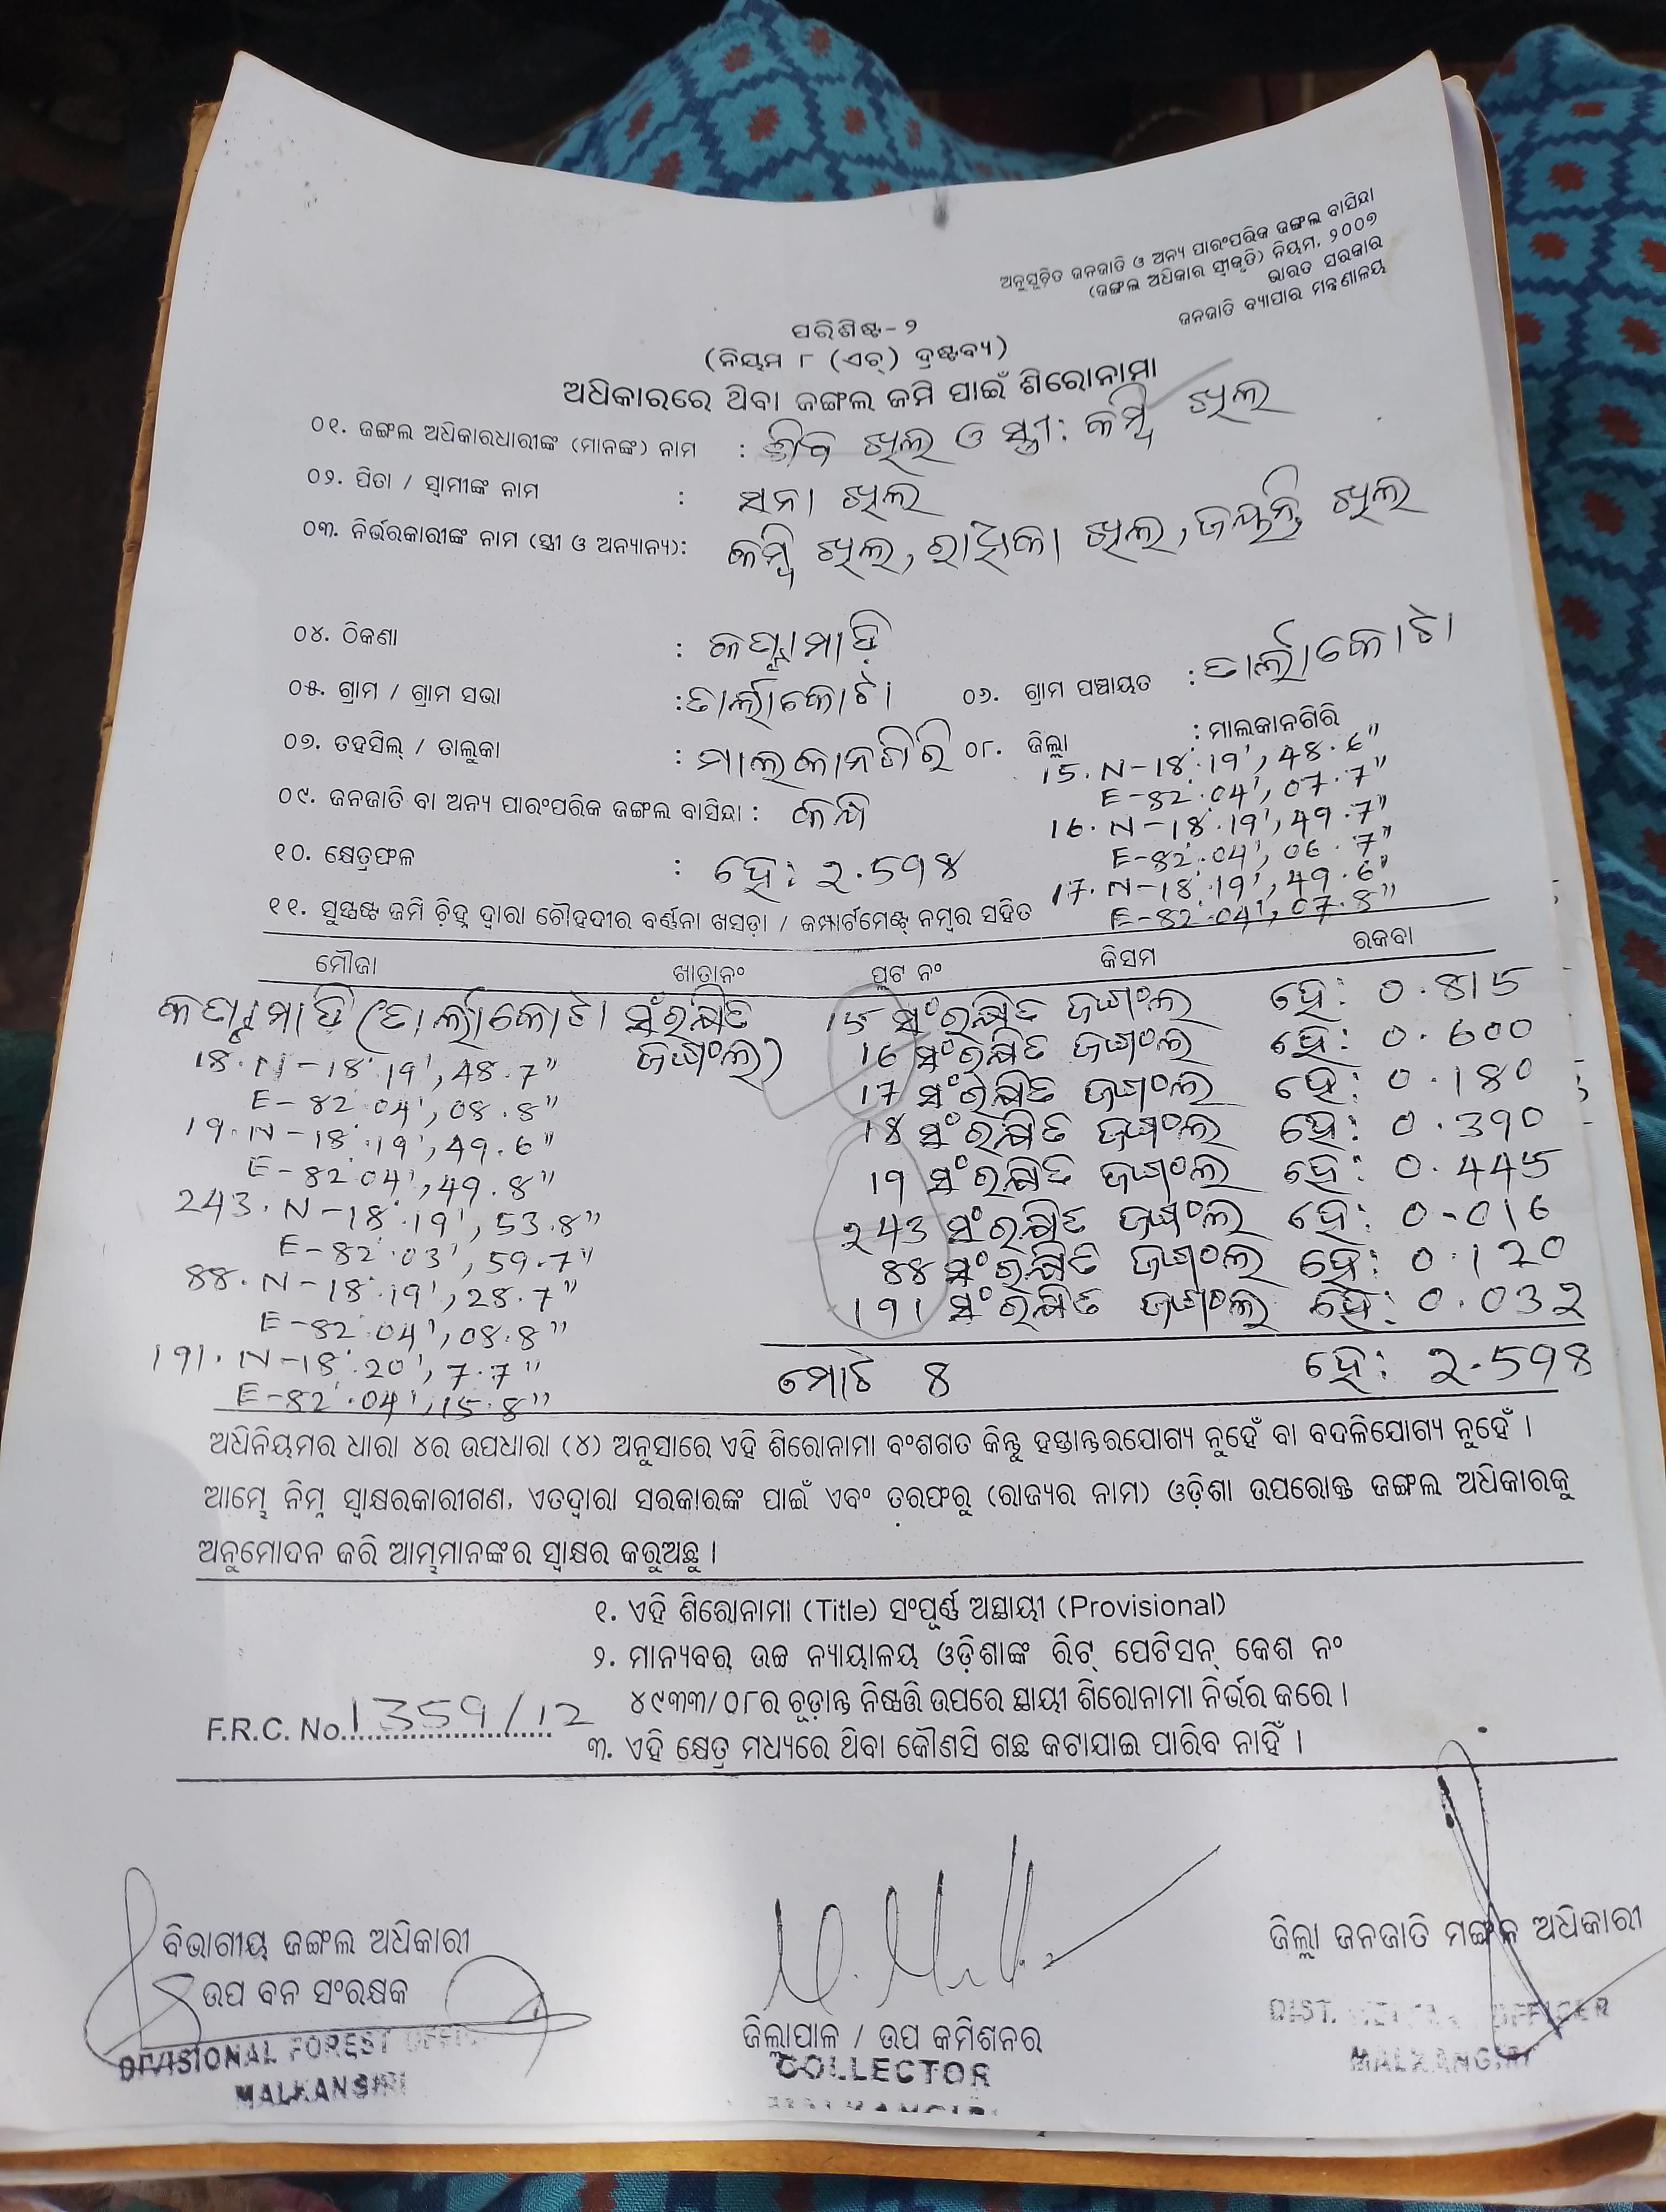 ଅନୁସୂଚିତ ଜନଜାତି ଓ ଅନ୍ୟ ପାରଂପରିକ ଜଙ୍ଗଲ ବାସିନ୍ଦା
(ଜଙ୍ଗଲ ଅଧିକାର ସ୍ୱୀକୃତି) ନିୟମ, ୨୦୦୭
ଭାରତ ସରକାର
ଜନଜାତି ବ୍ୟାପାର ମନ୍ତ୍ରଣାଳୟ
ପରିଶିଷ୍ଟ-୨
(ନିୟମ ୮ (ଏଚ୍) ଦ୍ରଷ୍ଟବ୍ୟ)
ଅଧିକାରରେ ଥିବା ଜଙ୍ଗଲ ଜମି ପାଇଁ ଶିରୋନାମା
୦୧. ଜଙ୍ଗଲ ଅଧିକାରଧାରୀଙ୍କ (ମାନଙ୍କ) ନାମ : ଖିଲ ଓ ସ୍ତ୍ରୀ: ଖିଲ
୦୨. ପିତା / ସ୍ୱାମୀଙ୍କ ନାମ : ସନା ଖିଲ
୦୩. ନିର୍ଭରକାରୀଙ୍କ ନାମ (ସ୍ତ୍ରୀ ଓ ଅନ୍ୟାନ୍ୟ): ଖିଲ, ଖିଲ, ଜୟନ୍ତି ଖିଲ
୦୪. ଠିକଣା :
୦୫. ଗ୍ରାମ / ଗ୍ରାମ ସଭା : ତାର୍ଲାକୋଟା ୦୬. ଗ୍ରାମ ପଞ୍ଚାୟତ : ତାର୍ଲାକୋଟା
୦୭. ତହସିଲ୍ / ତାଲୁକା : ମାଲକାନଗିରି ୦୮. ଜିଲ୍ଲା : ମାଲକାନଗିରି
15. N-18°.19', 48.6"
E-82°.04', 07.7"
୦୯. ଜନଜାତି ବା ଅନ୍ୟ ପାରଂପରିକ ଜଙ୍ଗଲ ବାସିନ୍ଦା :
16. N-18°.19', 49.7"
E-82°.04', 06.7"
୧୦. କ୍ଷେତ୍ରଫଳ : ହେ: ୨.598
17. N-18°.19', 49.6"
E-82°.04', 07.8"
୧୧. ସୁସ୍ପଷ୍ଟ ଜମି ଚିହ୍ନ ଦ୍ୱାରା ଚୌହଦୀର ବର୍ଣ୍ଣନା ଖସଡ଼ା / କମ୍ପାର୍ଟମେଣ୍ଟ୍ ନମ୍ବର ସହିତ
ମୌଜା ଖାତାନଂ ପ୍ଲଟ ନଂ କିସମ ରକବା
(ତାର୍ଲାକୋଟା ସଂରକ୍ଷିତ ଜଙ୍ଗଲ) 15 ସଂରକ୍ଷିତ ଜଙ୍ଗଲ ହେ: 0.815
16 ସଂରକ୍ଷିତ ଜଙ୍ଗଲ ହେ: 0.600
17 ସଂରକ୍ଷିତ ଜଙ୍ଗଲ ହେ: 0.180
18 ସଂରକ୍ଷିତ ଜଙ୍ଗଲ ହେ: 0.390
19 ସଂରକ୍ଷିତ ଜଙ୍ଗଲ ହେ: 0.445
୨43 ସଂରକ୍ଷିତ ଜଙ୍ଗଲ ହେ: 0-016
88 ସଂରକ୍ଷିତ ଜଙ୍ଗଲ ହେ: 0.120
191 ସଂରକ୍ଷିତ ଜଙ୍ଗଲ ହେ: 0.03୨
18. N-18°.19', 48.7"
E-82°04', 08.8"
19. N-18°.19', 49.6"
E-82°04', 49.8"
243. N-18°.19', 53.8"
E-82°.03', 59.7"
88. N-18°.19', 28.7"
E-82°.04', 08.8"
191. N-18°.20', 7.7"
E-82°.04', 15.8"
ମୋଟ 8 ହେ: ୨.598
ଅଧିନିୟମର ଧାରା ୪ର ଉପଧାରା (୪) ଅନୁସାରେ ଏହି ଶିରୋନାମା ବଂଶଗତ କିନ୍ତୁ ହସ୍ତାନ୍ତରଯୋଗ୍ୟ ନୁହେଁ ବା ବଦଳିଯୋଗ୍ୟ ନୁହେଁ ।
ଆମ୍ଭେ ନିମ୍ନ ସ୍ୱାକ୍ଷରକାରୀଗଣ, ଏତଦ୍ୱାରା ସରକାରଙ୍କ ପାଇଁ ଏବଂ ତରଫରୁ (ରାଜ୍ୟର ନାମ) ଓଡ଼ିଶା ଉପରୋକ୍ତ ଜଙ୍ଗଲ ଅଧିକାରକୁ
ଅନୁମୋଦନ କରି ଆମ୍ଭମାନଙ୍କର ସ୍ୱାକ୍ଷର କରୁଅଛୁ ।
୧. ଏହି ଶିରୋନାମା (Title) ସଂପୂର୍ଣ୍ଣ ଅସ୍ଥାୟୀ (Provisional)
୨. ମାନ୍ୟବର ଉଚ୍ଚ ନ୍ୟାୟାଳୟ ଓଡ଼ିଶାଙ୍କ ରିଟ୍ ପେଟିସନ୍ କେଶ ନଂ
୪୯୩୩/୦୮ର ଚୂଡ଼ାନ୍ତ ନିଷ୍ପତ୍ତି ଉପରେ ସ୍ଥାୟୀ ଶିରୋନାମା ନିର୍ଭର କରେ ।
F.R.C. No. 1359/12
୩. ଏହି କ୍ଷେତ୍ର ମଧ୍ୟରେ ଥିବା କୌଣସି ଗଛ କଟାଯାଇ ପାରିବ ନାହିଁ ।
ବିଭାଗୀୟ ଜଙ୍ଗଲ ଅଧିକାରୀ
ଉପ ବନ ସଂରକ୍ଷକ
DIVISIONAL FOREST
MALKANGIRI
ଜିଲ୍ଲାପାଳ / ଉପ କମିଶନର
COLLECTOR
MALKANGIRI
ଜିଲ୍ଲା ଜନଜାତି ମଙ୍ଗଳ ଅଧିକାରୀ
DIST. WELFARE OFFICER
MALKANGIRI